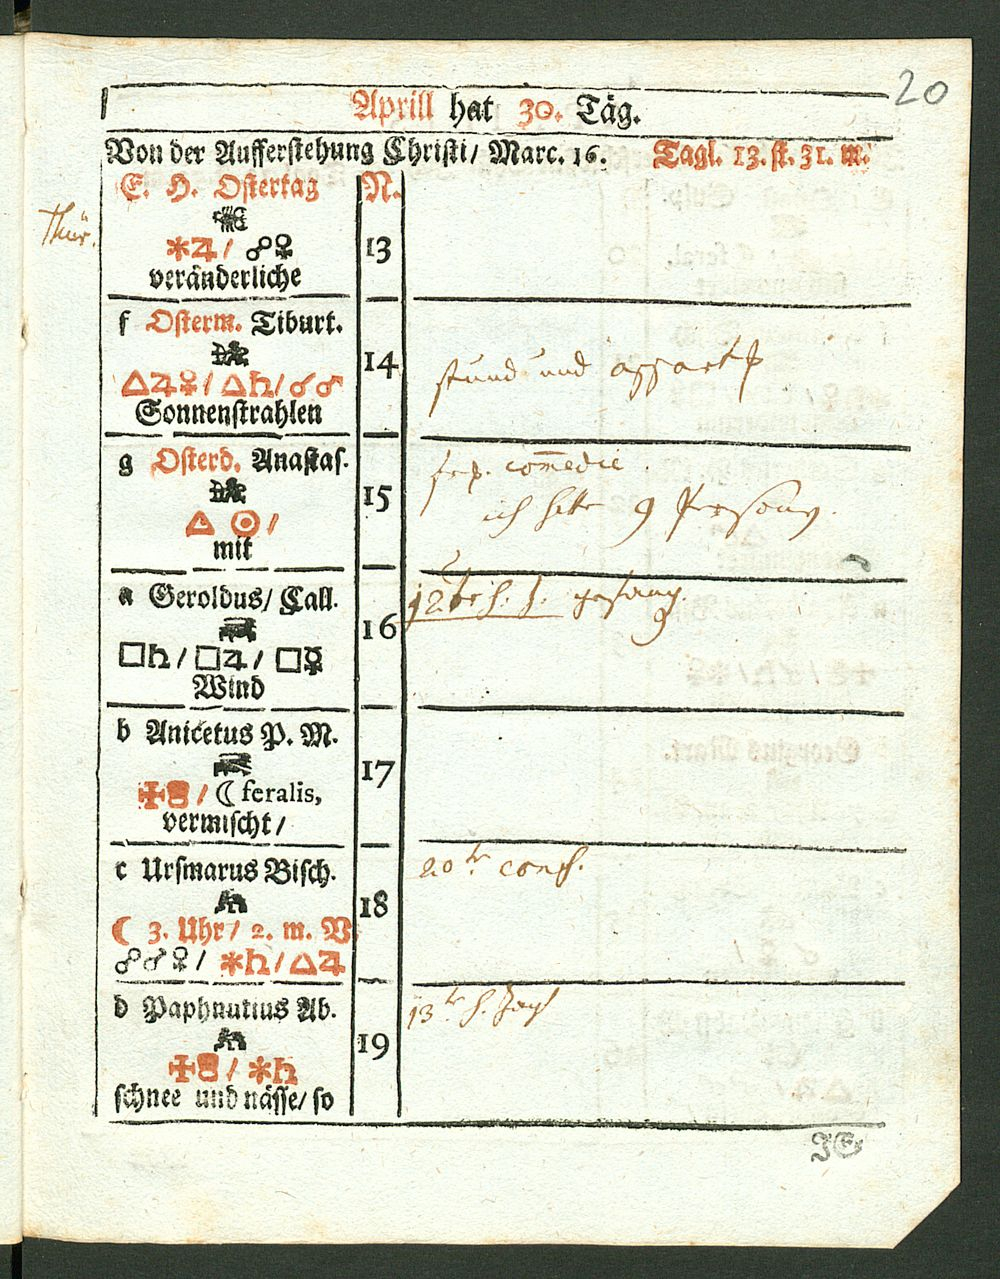 20
Aprill hat 30. Täg.
Von der Aufferstehung Christi/ Marc. 16. Tagl. 13. st. 31. m.
E. H. Ostertag N.
Thür.
✶♃/ ☍♀ 13
veränderliche
f Osterm. Tiburt.
△♃♀/ △♄/ ☌♂ 14
Sonnenstrahlen
stund und
g Osterd. Anastas.
△ ☉/ 15
mit
comedie.
ich hatte 9 Persohnen.
a Geroldus/ Call.
□♄/ □♃/ □☿ 16
Wind
12te
b Anicetus P. M.
/ ☾ feralis, 17
vermischt/
c Ursmarus Bisch.
☾ 3. Uhr/ 2. m. V. 18
☍♂♀/ ✶♄/△♃
20tr conf.
d Paphnutius Ab.
/ ✶♄ 19
schnee und nässe/ so
13tr
JE